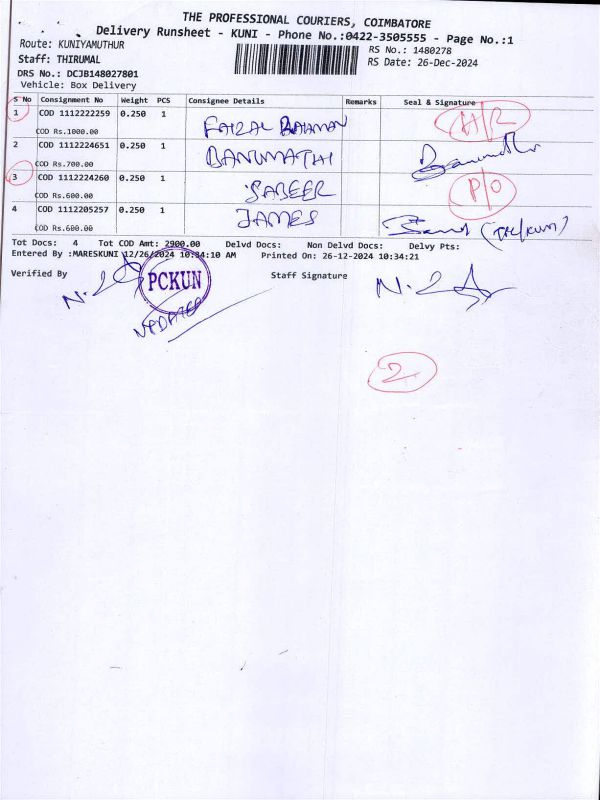 THE PROFESSIONAL COURIERS, COIMBATORE
Delivery Runsheet - KUNI - Phone No.:0422-3505555 - Page No.:1
Route: KUNIYAMUTHUR
RS No.: 1480278
Staff: THIRUMAL
RS Date: 26-Dec-2024
DRS No.: DCJB148027801
Vehicle: Box Delivery
S No Consignment No Weight PCS Consignee Details Remarks Seal & Signature
1 COD 1112222259 0.250 1 FAIZAL RAHMAN H/R
COD Rs.1000.00
2 COD 1112224651 0.250 1 BANUMATHI
COD Rs.700.00
3 COD 1112224260 0.250 1 SABEER P/O
COD Rs.600.00
4 COD 1112205257 0.250 1 JAMES
COD Rs.600.00
Tot Docs: 4 Tot COD Amt: 2900.00 Delvd Docs: Non Delvd Docs: Delvy Pts:
Entered By :MARESKUNI 12/26/2024 10:34:10 AM Printed On: 26-12-2024 10:34:21
Verified By PCKUN Staff Signature
UPDATED
2